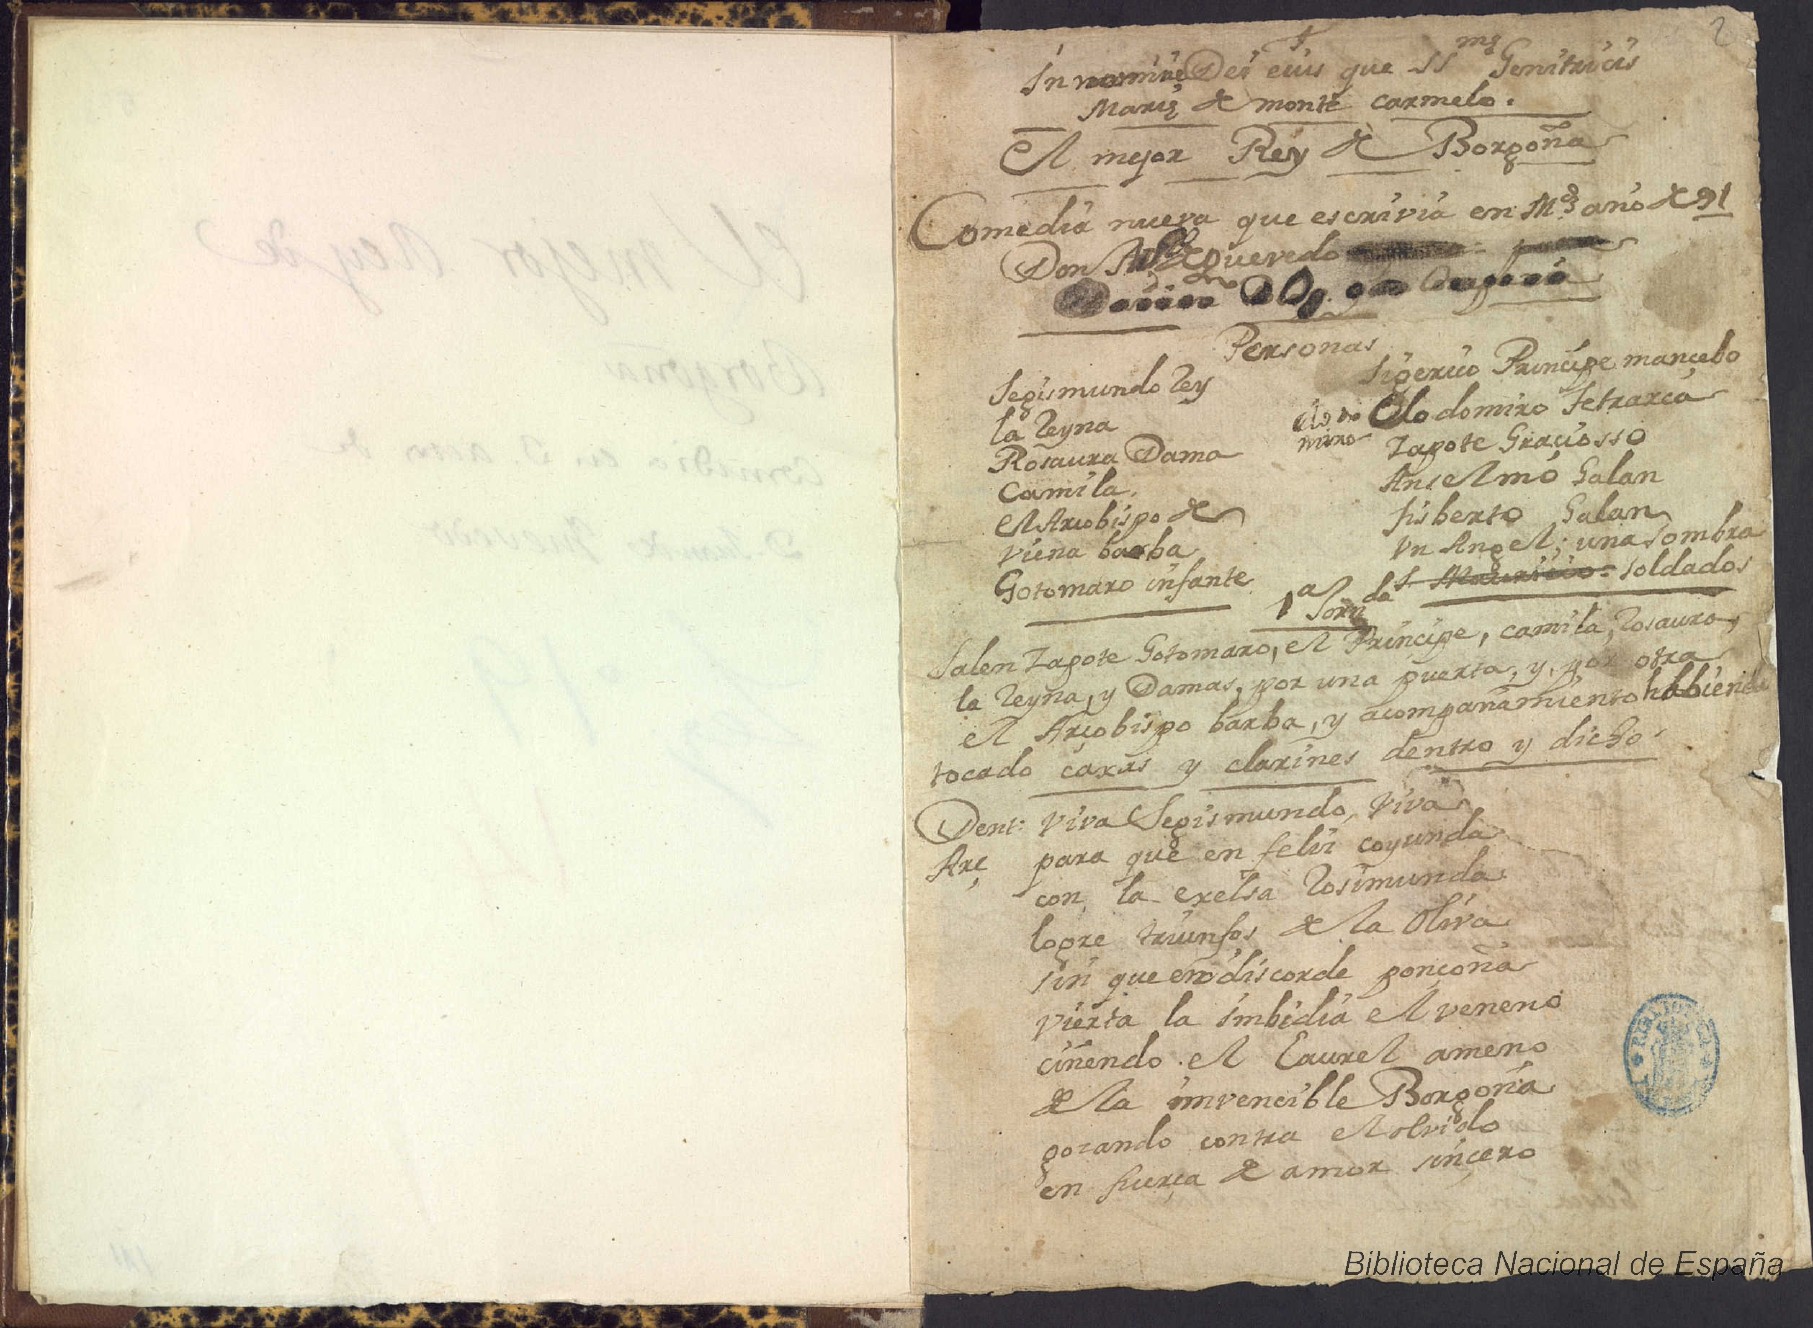 2
In nomine Dei eius que SS mę Genitricis
Marię de monte Carmelo.
El mejor Rey de Borgoña
Comedia nueva que escrivia en Md año de 91
Don Quevedo
Personas
Segismundo Rey
la Reyna
Rosaura Dama
Camila.
El Arçobispo de
Viena barba
Gotomaro infante
Sigerico Principe mancebo
Clodomiro Tetrarca
Clodomiro
Zapote Graciosso
Anselmo Galan
Fisberto Galan
Un Angel; una sombra
S Mauricio. soldados
1ª Jornda
Salen Zapote Gotomaro, el Principe, camila, Rosaura,
la Reyna, y Damas, por una puerta, y por otra
el Arçobispo barba, y acompañamiento habiendo
tocado caxas y clarines dentro y dicho.
Dent: Viva Segismundo, viva
Arç para que en feliz coyunda
con la exelsa Rosimunda
logre triunfos de la Oliva
sin que en discorde ponçoña
vierta la imbidia el veneno
ciñendo el Laurel ameno
de la imvencible Borgoña
gozando contra el olvido
en fuerça de amor sinçero
Biblioteca Nacional de España